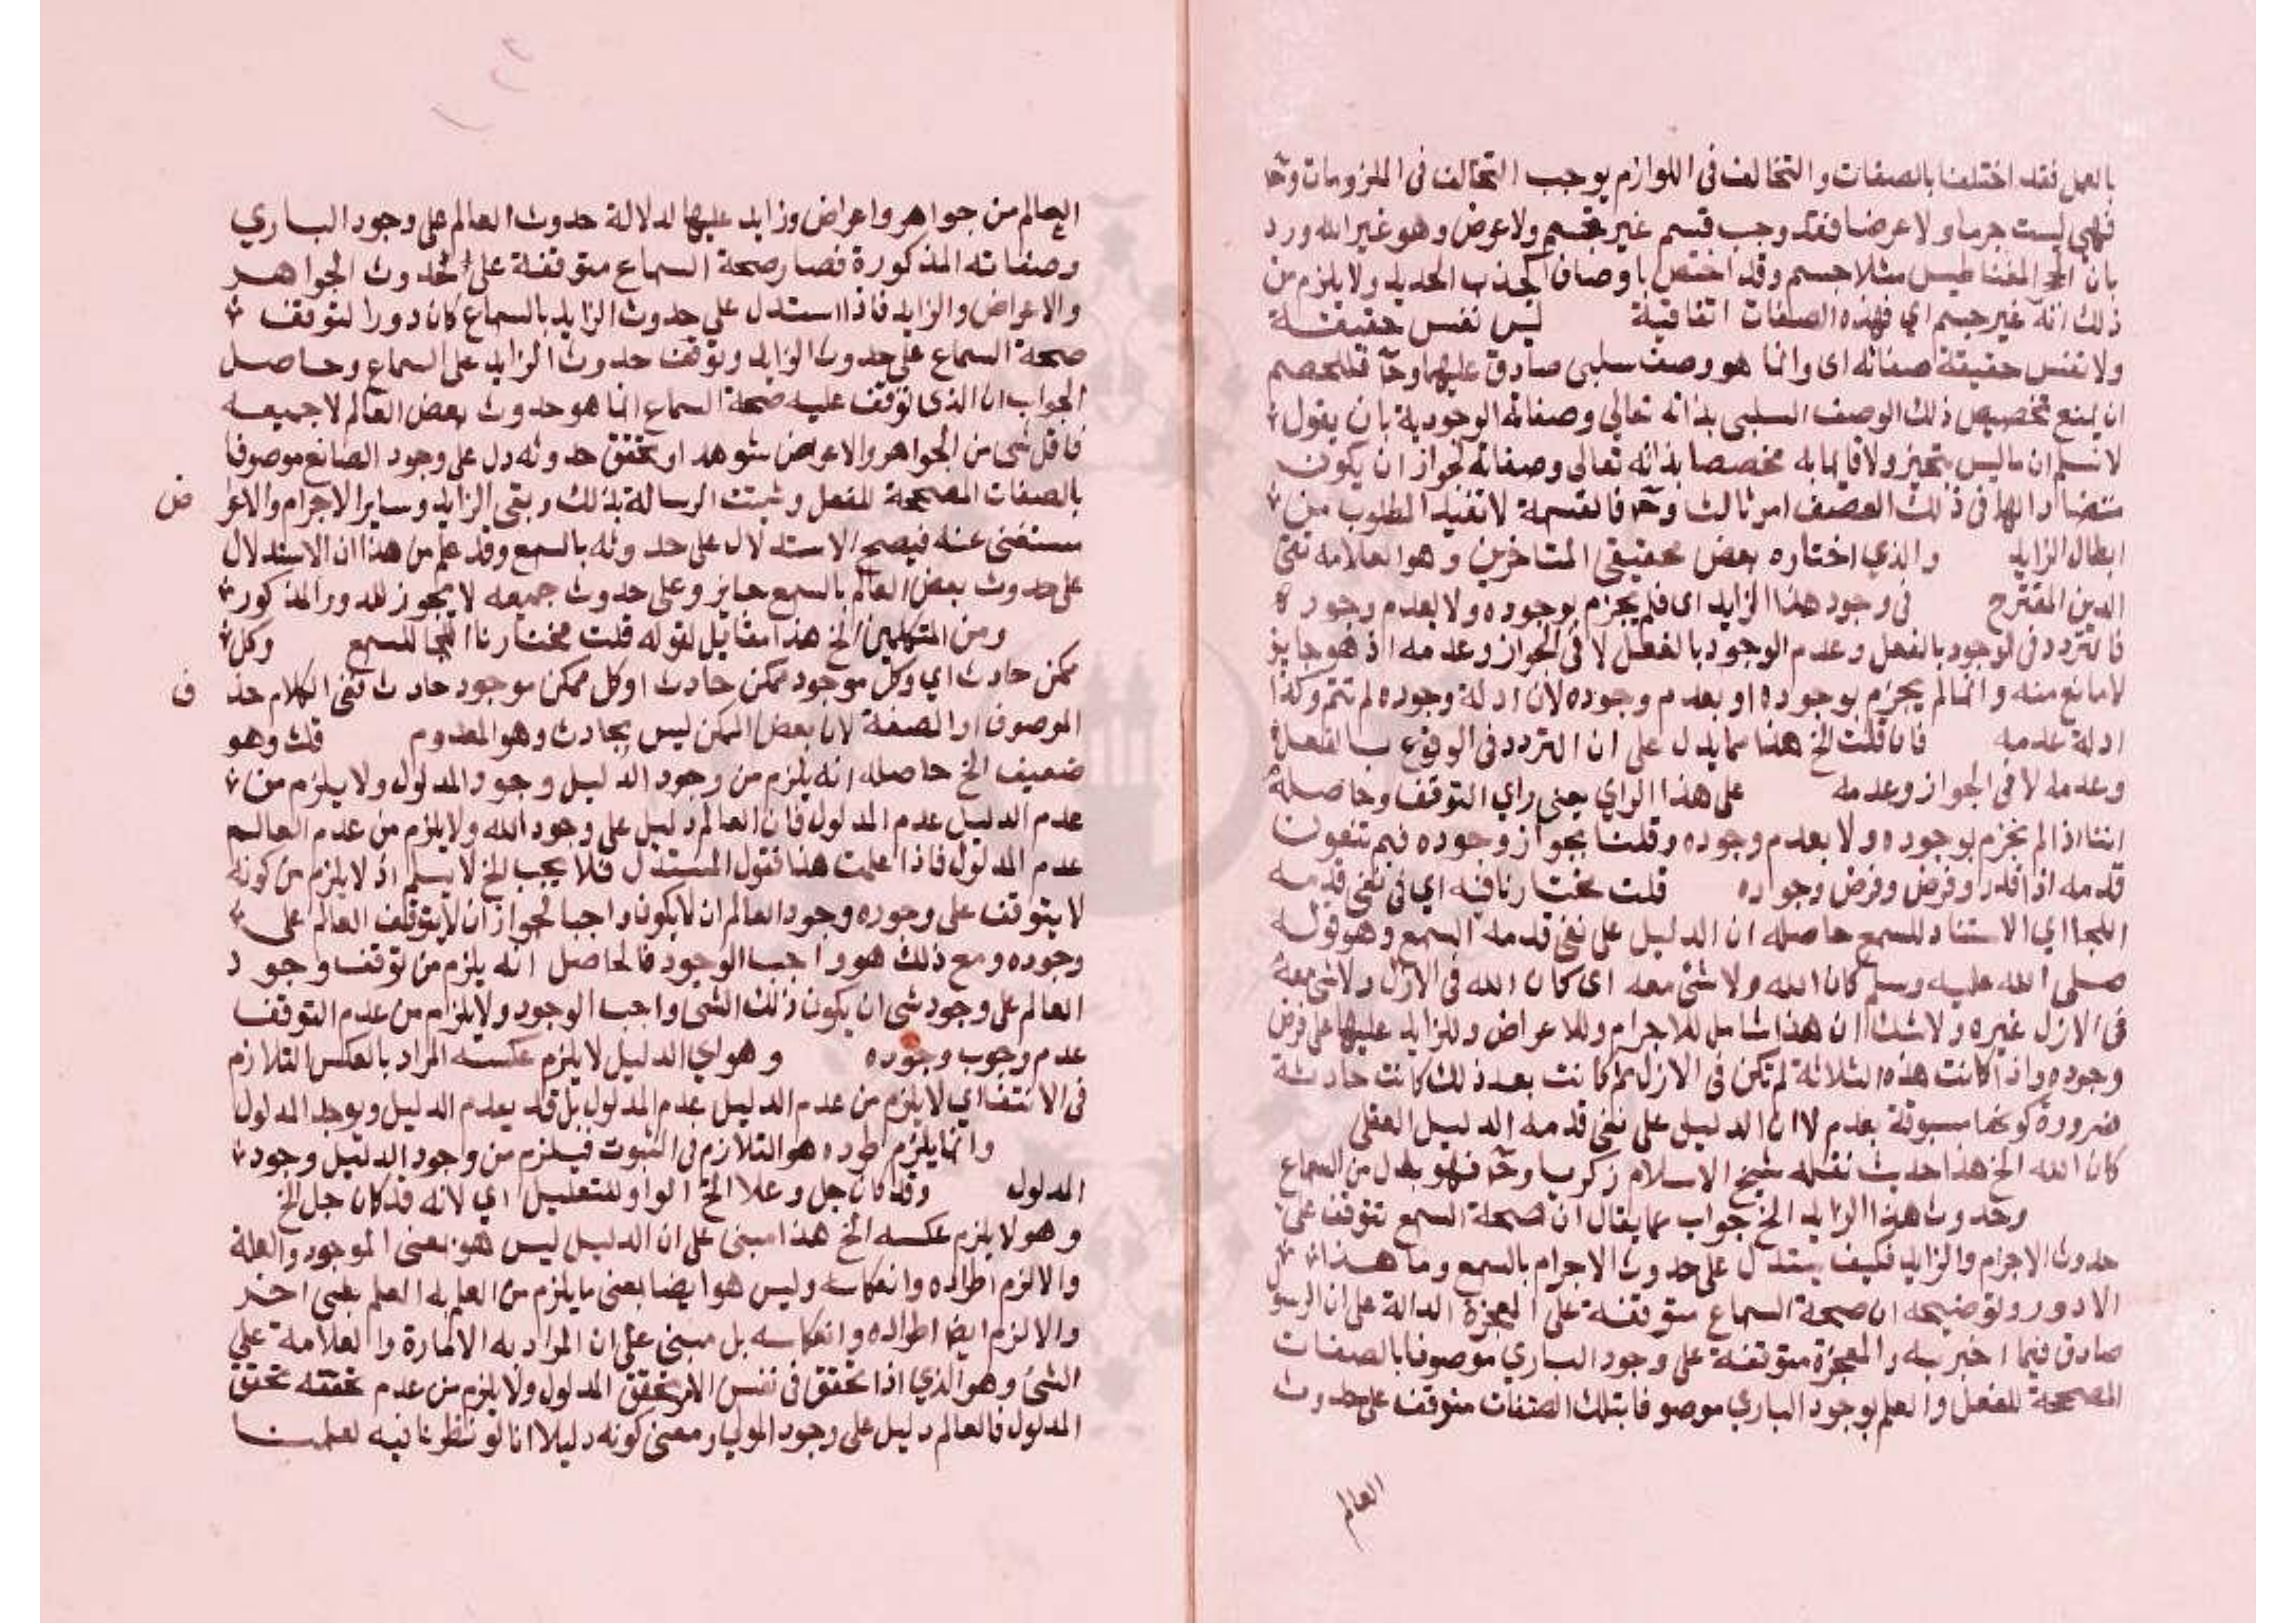 بالعمل فقد اختلفنا بالصفات والتخالف فى اللوازم يوجب التخالف فى الملزومات وحـ
فهى ليست جرما ولا عرضا فقد وجب قسم غير جسم ولا عرض وهو غير الله ورد
بان المغناطيس مثلا جسم وقد اختص باوصاف كجذب الحديد ولا يلزم من
ذلك انه غير جسم اي فهذه الصفات اتفاقية ليس نفس حقيقة
ولا نفس حقيقة صفاته اى وانما هو وصف سلبى صادق عليهما وحـ فللخصم
ان يمنع تخصيص ذلك الوصف السلبى بذاته تعالى وصفاته الوجودية بان يقول
لا نسلم ان ما ليس بتحيز ولا قائما به مختصا بذاته تعالى وصفاته لجواز ان يكون
فى ذلك امر ثالث وحـ فالقسمة لا تفيد المطلوب من
ابطال الزايد والذي اختاره بعض محققى المتاخرين وهو العلامة تقى
الدين المقترح فى وجود هذا الزايد اى فلم يجزم بوجوده ولا بعدم وجوده
فالتردد فى الوجود بالفعل وعدم الوجود بالفعل لا فى الجواز وعدمه اذ هو جايز
لا مانع منه وانما لم يجزم بوجوده او بعدم وجوده لان ادلة وجوده لم تتم وكذا
ادلة عدمه فان قلت الخ هذا مما يدل على ان التردد فى الوقوع بالفعل
وعدمه لا فى الجواز وعدمه على هذا الراي يعنى راي التوقف وحاصله
اننا اذا لم نجزم بوجوده ولا بعدم وجوده وقلنا بجواز وجوده فبم تنفون
قدمه اذا قدر وفرض وفرض وجوده قلت مختارنا فيه اي فى نفى قدمه
اللجا اي الاستناد للسمع حاصله ان الدليل على نفى قدمه السمع وهو قوله
صلى الله عليه وسلم كان الله ولا شئ معه اى كان الله فى الازل ولا شئ معه
فى الازل غيره ولا شك ان هذا شامل للاجرام وللاعراض وللزايد عليها على فرض
وجوده واذا كانت هذه الثلاثة لم تكن فى الازل ثم كانت بعد ذلك كانت حادثة
ضرورة كونها مسبوقة بعدم لا ان الدليل على نفى قدمه الدليل العقلى
كان الله الخ هذا حديث نقله شيخ الاسلام زكريا وحـ فهو بدل من السماع
وحدوث هذا الزايد الخ جواب عما يقال ان صحة السمع تتوقف على
حدوث الاجرام والزايد فكيف يستدل على حدوث الاجرام بالسمع وما هذا
الا دور وتوضيحه ان صحة السماع متوقفة على المعجزة الدالة على ان الرسول
صادق فيما اخبر به والمعجزة متوقفة على وجود الباري موصوفا بالصفات
المصححة للفعل والعلم بوجود الباري موصوفا بتلك الصفات متوقف على حدوث
العالم
العالم من جواهر واعراض وزايد عليها لدلالة حدوث العالم على وجود الباري
وصفاته المذكورة فصار صحة السماع متوقفة على حدوث الجواهر
والاعراض والزايد فاذا استدل على حدوث الزايد بالسماع كان دورا لتوقف
صحة السماع على حدوث الزايد وتوقف حدوث الزايد على السماع وحاصل
الجواب ان الذى توقف عليه صحة السماع انما هو حدوث بعض العالم لا جميعه
فاقل شى من الجواهر والاعراض شوهد او تحقق حدوثه دل على وجود الصانع موصوفا
بالصفات المصححة للفعل وثبتت الرسالة بذلك وبقى الزايد وساير الاجرام والاعراض
مستغنى عنه فيصح الاستدلال على حدوثه بالسمع وقد علم من هذا ان الاستدلال
على حدوث بعض العالم بالسمع جايز وعلى حدوث جميعه لا يجوز للدور المذكور
ومن المتكلمين الخ هذا مقابل لقوله قلت مختارنا اللجا للسمع وكل
ممكن حادث اي وكل موجود ممكن حادث او كل ممكن موجود حادث ففى الكلام حذف
الموصوف او الصفة لان بعض الممكن ليس بحادث وهو المعدوم قلت وهو
ضعيف الخ حاصله انه يلزم من وجود الدليل وجود المدلول ولا يلزم من
عدم الدليل عدم المدلول فان العالم دليل على وجود الله ولا يلزم من عدم العالم
عدم المدلول فاذا علمت هذا فقول المستدل فلا يجب الخ لا يسلم اذ لا يلزم من كونه
لا يتوقف على وجوده وجود العالم ان لا يكون واجبا لجواز ان لا يتوقف العالم على
وجوده ومع ذلك هو واجب الوجود فالحاصل انه يلزم من توقف وجود
العالم على وجود شى ان يكون ذلك الشى واجب الوجود ولا يلزم من عدم التوقف
عدم وجوب وجوده وهو اي الدليل لا يلزم عكسه المراد بالعكس التلازم
فى الانتفا اي لا يلزم من عدم الدليل عدم المدلول بل قد يعدم الدليل ويوجد المدلول
وانما يلزم طرده هو التلازم فى الثبوت فيلزم من وجود الدليل وجود
المدلول وقد كان جل وعلا الخ الواو للتعليل اي لانه قد كان جل الخ
وهو لا يلزم عكسه الخ هذا مبنى على ان الدليل ليس هو بمعنى الموجود والعلة
والا لزم اطراده وانعكاسه وليس هو ايضا بمعنى ما يلزم من العلم به العلم بشى اخر
والا لزم ايضا اطراده وانعكاسه بل مبنى على ان المراد به الامارة والعلامة على
الشئ وهو الذي اذا تحقق فى نفس الامر تحقق المدلول ولا يلزم من عدم تحققه تحقق
المدلول فالعالم دليل على وجود المولى ومعنى كونه دليلا انا لو نظرنا فيه لعلمنا